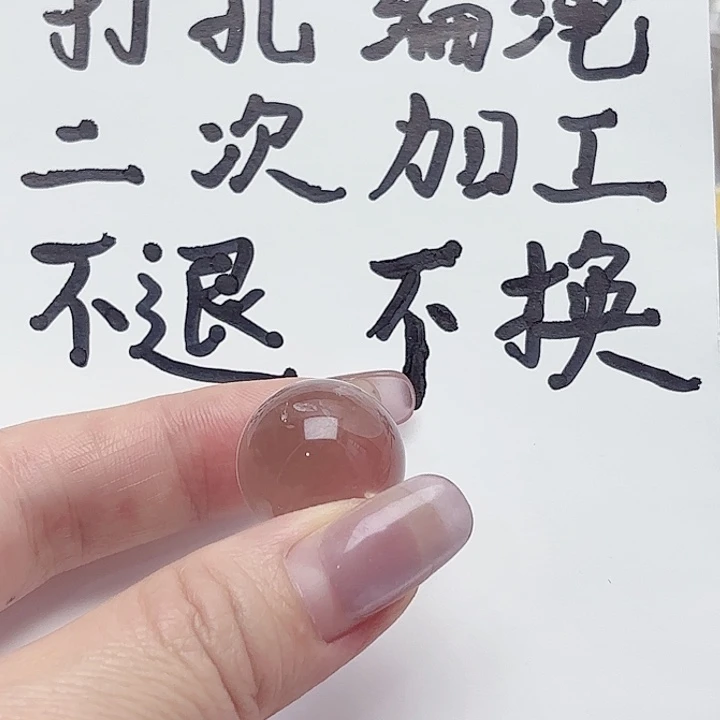 打孔 编绳
二次 加工
不退 不换